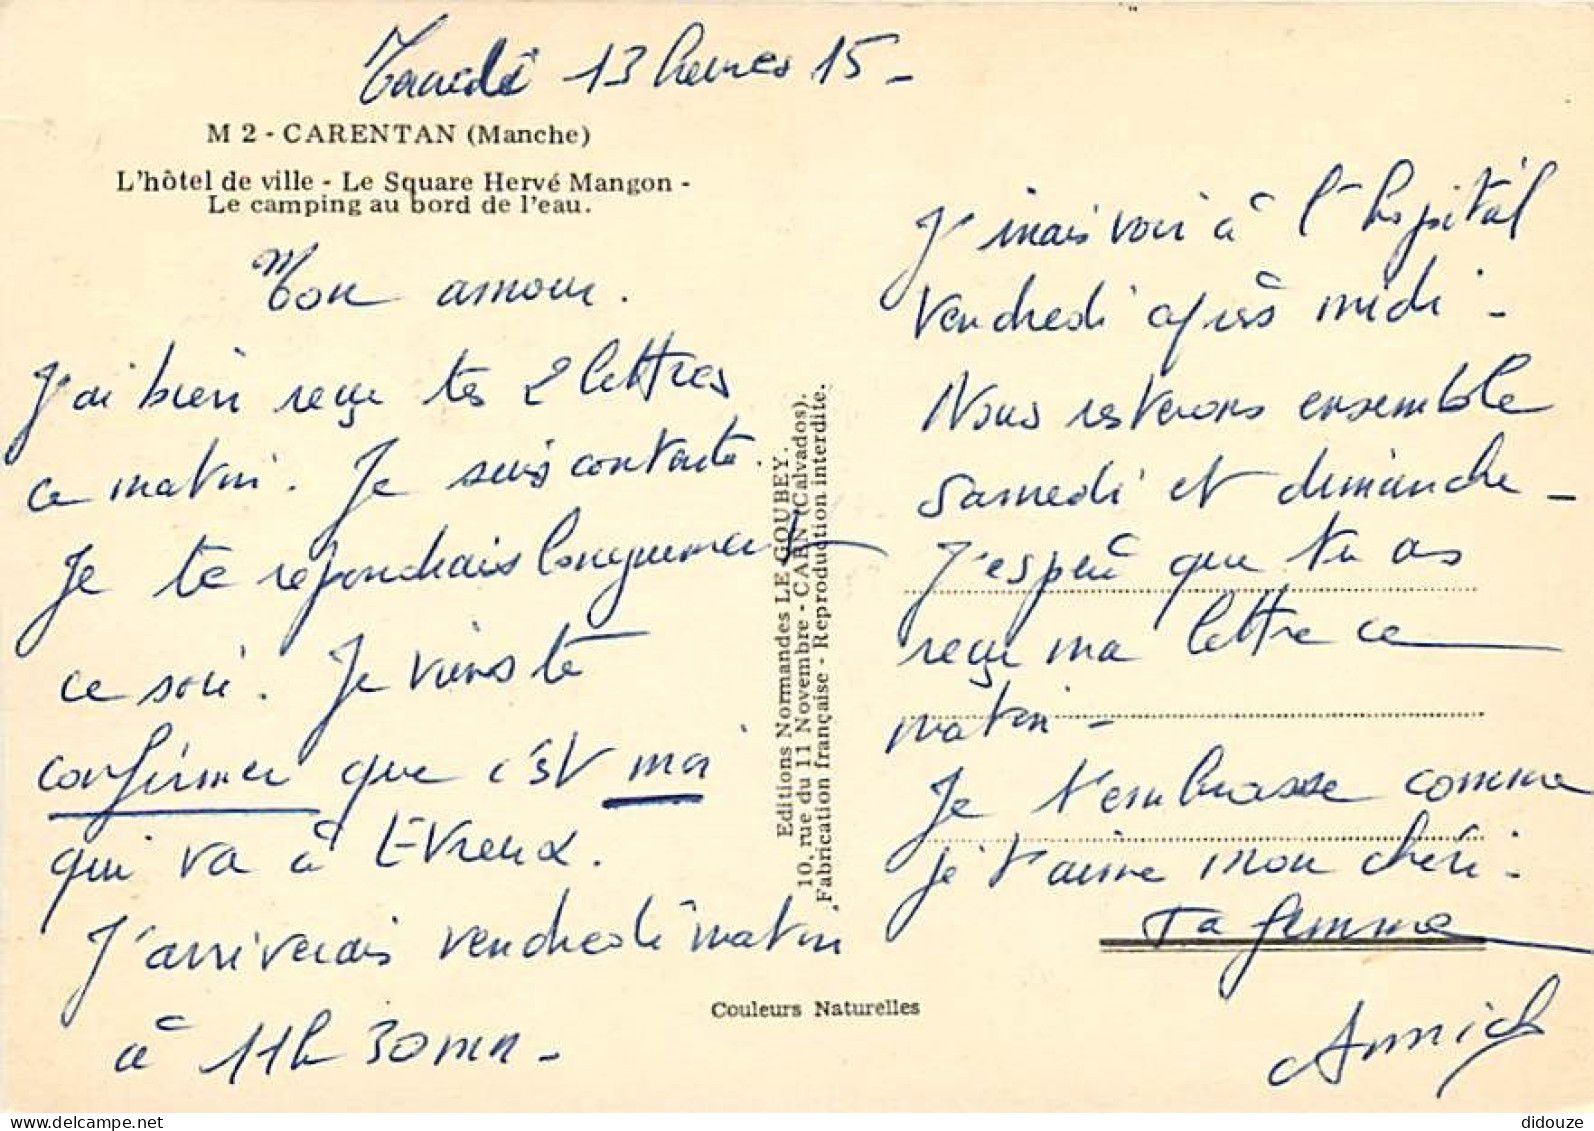 13 heures 15 -
M 2 - CARENTAN (Manche)
L'hôtel de ville - Le Square Hervé Mangon -
Le camping au bord de l'eau.
Mon amour.
J'ai bien reçu tes 2 lettres
ce matin. Je suis contente.
Je te répondrais longuement
ce soir. Je viens te
confirmer que c'est moi
qui va à Evreux.
J'arriverais vendredi matin
à 11h 30mn -
J'irais voir à l'hopital
vendredi après midi -
Nous resterons ensemble
samedi et dimanche -
J'espère que tu as
reçu ma lettre ce
matin -
Je t'embrasse comme
je t'aime mon chéri -
Ta femme
Annick
Editions Normandes LE GOUBEY.
10, rue du 11 Novembre - CAEN (Calvados).
Fabrication française - Reproduction interdite.
Couleurs Naturelles
delcampe.net
didouze